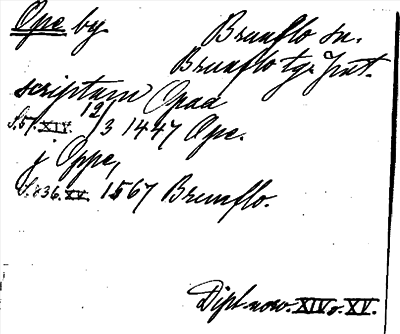 Ope by
Brunflo sn.
Brunflo tg. Jmt.
scriptum Opaa
S.57.XIV. 12/3 1447 Ope.
j Oppe,
S.836.XV. 1567 Brunflo.
Dipl. norv. XIV o. XV.